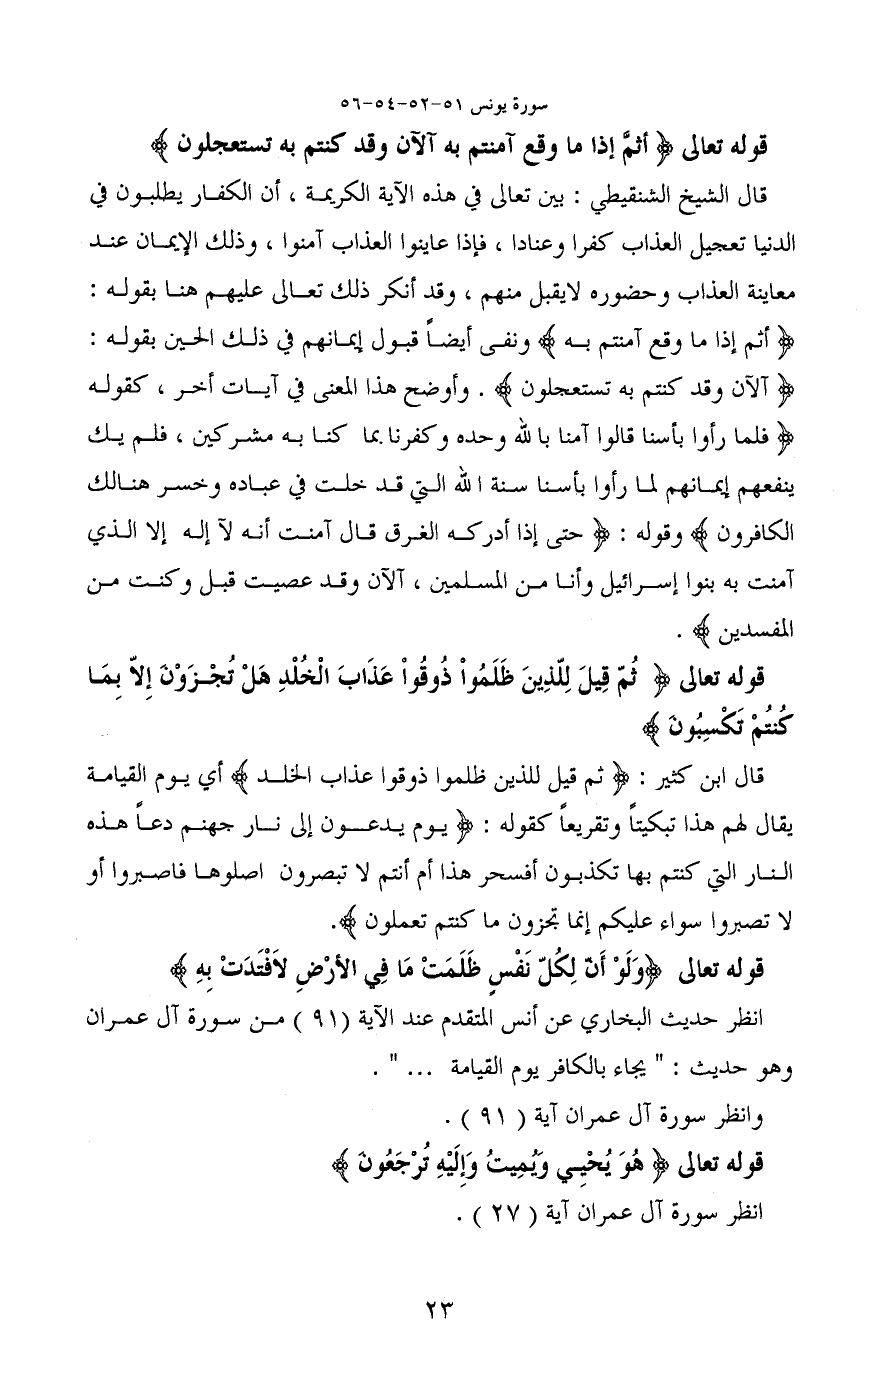 سورة يونس ٥١-٥٢-٥٤-٥٦
قوله تعالى ﴿ أثمَّ إذا ما وقع آمنتم به آلآن وقد كنتم به تستعجلون ﴾
قال الشيخ الشنقيطي : بين تعالى في هذه الآية الكريمة ، أن الكفار يطلبون في
الدنيا تعجيل العذاب كفرا وعنادا ، فإذا عاينوا العذاب آمنوا ، وذلك الإيمان عند
معاينة العذاب وحضوره لايقبل منهم ، وقد أنكر ذلك تعالى عليهم هنا بقوله :
﴿ أثم إذا ما وقع آمنتم به ﴾ ونفى أيضاً قبول إيمانهم في ذلك الحين بقوله :
﴿ آلآن وقد كنتم به تستعجلون ﴾ . وأوضح هذا المعنى في آيات أخر ، كقوله
﴿ فلما رأوا بأسنا قالوا آمنا با لله وحده وكفرنا بما كنا به مشركين ، فلم يك
ينفعهم إيمانهم لما رأوا بأسنا سنة ا لله التي قد خلت في عباده وخسر هنالك
الكافرون ﴾ وقوله : ﴿ حتى إذا أدركه الغرق قال آمنت أنه لآ إله إلا الذي
آمنت به بنوا إسرائيل وأنا من المسلمين ، آلآن وقد عصيت قبل وكنت من
المفسدين ﴾ .
قوله تعالى ﴿ ثُمّ قِيلَ لِلّذِينَ ظَلَمُواْ ذُوقُواْ عَذَابَ الْخُلْدِ هَلْ تُجْزَوْنَ إِلاّ بِمَا
كُنتُمْ تَكْسِبُونَ ﴾
قال ابن كثير : ﴿ ثم قيل للذين ظلموا ذوقوا عذاب الخلد ﴾ أي يوم القيامة
يقال لهم هذا تبكيتاً وتقريعاً كقوله : ﴿ يوم يدعون إلى نار جهنم دعاً هذه
النار التي كنتم بها تكذبون أفسحر هذا أم أنتم لا تبصرون اصلوها فاصبروا أو
لا تصبروا سواء عليكم إنما تجزون ما كنتم تعملون ﴾.
قوله تعالى ﴿وَلَوْ أَنّ لِكُلّ نَفْسٍ ظَلَمَتْ مَا فِي الأرْضِ لاَفْتَدَتْ بِهِ ﴾
انظر حديث البخاري عن أنس المتقدم عند الآية (٩١ ) من سورة آل عمران
وهو حديث : " يجاء بالكافر يوم القيامة ... " .
وانظر سورة آل عمران آية ( ٩١ ) .
قوله تعالى ﴿ هُوَ يُحْيِي وَيُمِيتُ وَإِلَيْهِ تُرْجَعُونَ ﴾
انظر سورة آل عمران آية ( ٢٧ ) .
٢٣